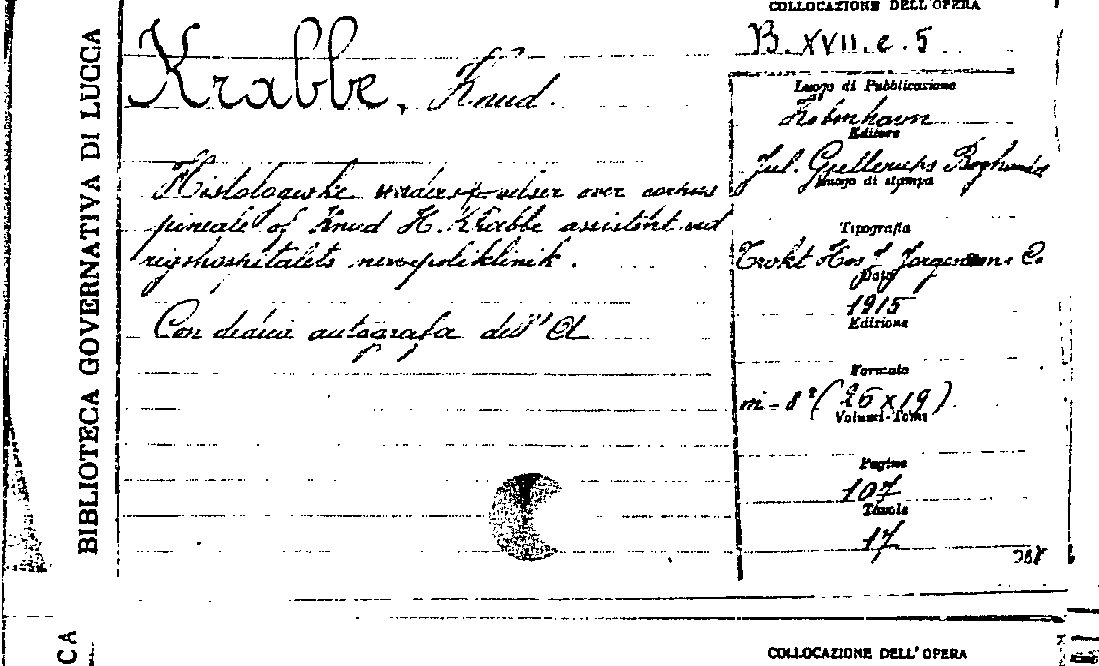 COLLOCAZIONE DELL'OPERA
B. XVII. e. 5
BIBLIOTECA GOVERNATIVA DI LUCCA
Krabbe, Knud.
Histologiske undersøgelser over corpus
pineale of Knud H. Krabbe assistent ved
rigshospitalets nervepoliklinik.
Con dedica autografa dell'A
Luogo di Pubblicazione
København
Editore
Jul. Gjellerups Boghandel
Luogo di stampa
Tipografia
Trykt Hos J. Jørgensen & Co
Data
1915
Edizione
Formato
in-8° (26 x 19)
Volumi-Tomi
Pagine
107
Tavole
17
COLLOCAZIONE DELL'OPERA
CA